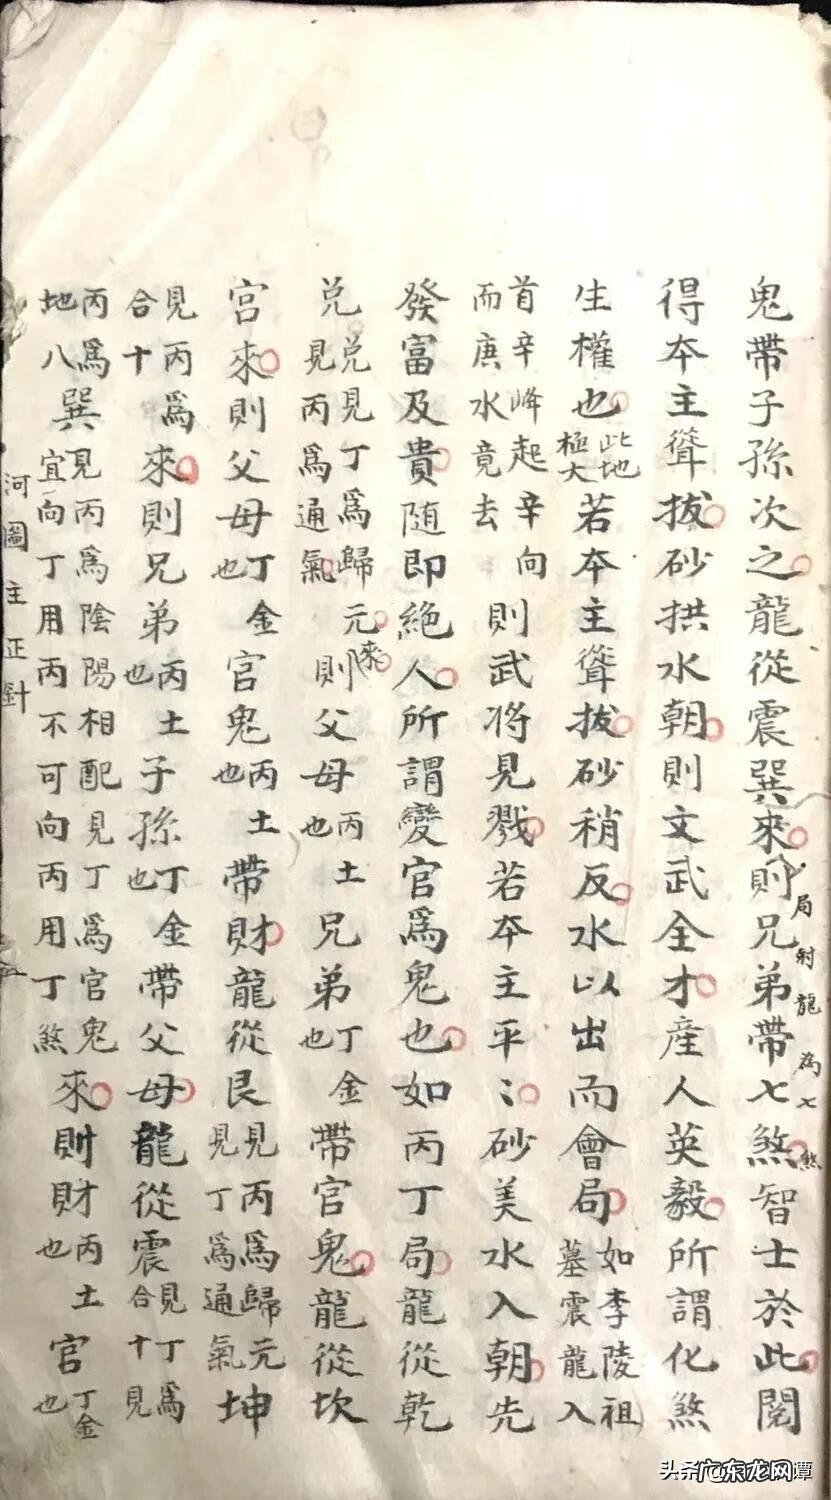 鬼帶子孫次之龍從震巽來則兄弟帶七煞智士於此閱
局射龍為七煞
得夲主聳拔砂拱水朝則文武全才産人英毅所謂化煞
生權也此地極大若夲主聳拔砂稍反水以出而會局如李陵祖墓震龍入
首辛峰起辛向而庚水竟去則武将見戮若夲主平〻砂美水入朝先
發富及貴随即絶人所謂變官為鬼也如丙丁局龍從乾
兌兌見丁為歸元見丙為通氣來則父母丙土也兄弟丁金也帶官鬼龍從坎
宮來則父母丁金也官鬼丙土也帶財龍從艮見丙為歸元見丁為通氣坤
見丙為合十來則兄弟丙土也子孫丁金也帶父母龍從震見丁為合十見
丙為地八巽見丙為陰陽相配見丁為官鬼宜向丁用丙不可向丙用丁煞來則財丙土也官丁金也
河圖主正針
头条
广东龙网
潭